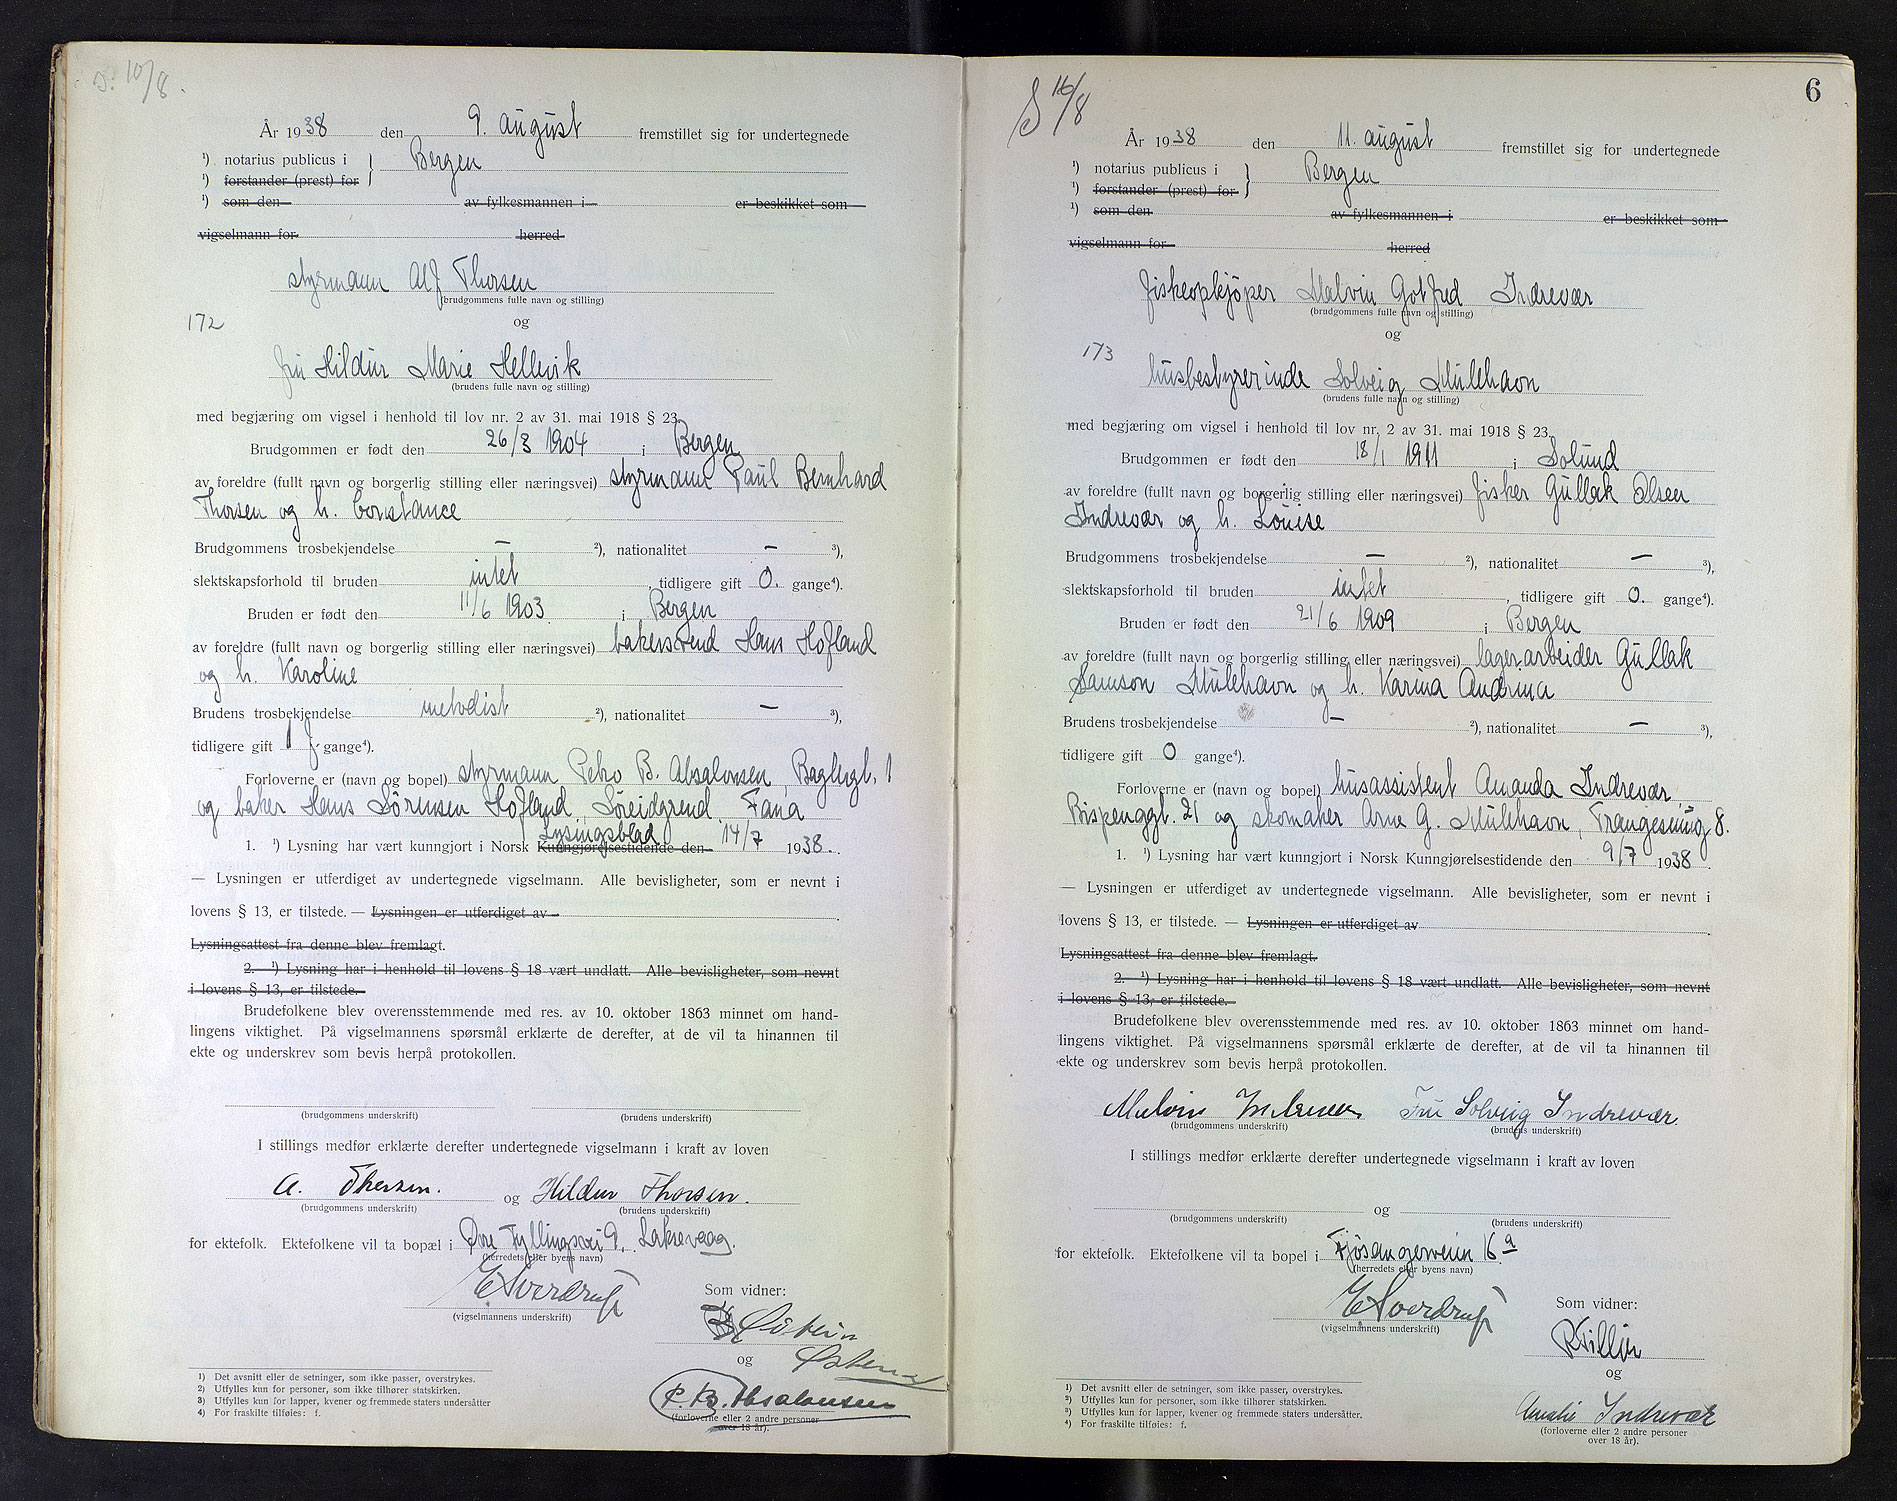 10/8.
År 1938 den 9. august fremstillet sig for undertegnede
¹) notarius publicus i } Bergen
¹) forstander (prest) for
¹) som den av fylkesmannen i er beskikket som
vigselmann for herred
styrmann Alf Thorsen
(brudgommens fulle navn og stilling)
172 og
fru Hildur Marie Hellevik
(brudens fulle navn og stilling)
med begjæring om vigsel i henhold til lov nr. 2 av 31. mai 1918 § 23.
Brudgommen er født den 26/3 1904 i Bergen
av foreldre (fullt navn og borgerlig stilling eller næringsvei) styrmann Paul Bernhard
Thorsen og h. Constance
Brudgommens trosbekjendelse — ²), nationalitet — ³),
slektskapsforhold til bruden intet , tidligere gift 0. gange⁴).
Bruden er født den 11/6 1903. i Bergen
av foreldre (fullt navn og borgerlig stilling eller næringsvei) bakersvend Hans Hofland
og h. Karoline
Brudens trosbekjendelse metodist ²), nationalitet — ³),
tidligere gift 1 f. gange⁴).
Forloverne er (navn og bopel) styrmann Peho B. Absalonsen, Baglergt. 1
og baker Hans Sörensen Hofland, Søreidgrend, Fana
Lysingsblad
1. ¹) Lysning har vært kunngjort i Norsk Kunngjørelsestidende den 14/7 1938.
— Lysningen er utferdiget av undertegnede vigselmann. Alle bevisligheter, som er nevnt i
lovens § 13, er tilstede. — Lysningen er utferdiget av
Lysningsattest fra denne blev fremlagt.
2. ¹) Lysning har i henhold til lovens § 18 vært undlatt. Alle bevisligheter, som nevnt
i lovens § 13, er tilstede.
Brudefolkene blev overensstemmende med res. av 10. oktober 1863 minnet om hand-
lingens viktighet. På vigselmannens spørsmål erklærte de derefter, at de vil ta hinannen til
ekte og underskrev som bevis herpå protokollen.
(brudgommens underskrift) (brudens underskrift)
I stillings medfør erklærte derefter undertegnede vigselmann i kraft av loven
A. Thorsen. og Hildur Thorsen.
(brudgommens underskrift) (brudens underskrift)
for ektefolk. Ektefolkene vil ta bopæl i Øvre Fyllingsvei 9. Laksevaag.
(herredets eller byens navn)
E Sverdrup
(vigselmannens underskrift)
Som vidner:
og
P. B. Absalonsen
(forloverne eller 2 andre personer
over 18 år).
¹) Det avsnitt eller de setninger, som ikke passer, overstrykes.
²) Utfylles kun for personer, som ikke tilhører statskirken.
³) Utfylles kun for lapper, kvener og fremmede staters undersåtter
⁴) For fraskilte tilføies: f.
6
S 16/8
År 1938 den 11. august fremstillet sig for undertegnede
¹) notarius publicus i } Bergen
¹) forstander (prest) for
¹) som den av fylkesmannen i er beskikket som
vigselmann for herred
fiskeopkjöper Malvin Gotfred Indrevær
(brudgommens fulle navn og stilling)
og
173
husbestyrerinde Solveig Mulehavn
(brudens fulle navn og stilling)
med begjæring om vigsel i henhold til lov nr. 2 av 31. mai 1918 § 23.
Brudgommen er født den 18/1 1911 i Solund
av foreldre (fullt navn og borgerlig stilling eller næringsvei) fisker Gullak Olsen
Indrevær og h. Louise
Brudgommens trosbekjendelse — ²), nationalitet — ³),
slektskapsforhold til bruden intet , tidligere gift 0. gange⁴).
Bruden er født den 21/6 1909 i Bergen
av foreldre (fullt navn og borgerlig stilling eller næringsvei) lagerarbeider Gullak
Samson Mulehavn og h. Karina Andrina
Brudens trosbekjendelse — ²), nationalitet — ³),
tidligere gift 0 gange⁴).
Forloverne er (navn og bopel) husassistent Amanda Indrevær,
Bispenggt. 21 og skomaker Arne G. Mulehavn, Frangesmug 8.
1. ¹) Lysning har vært kunngjort i Norsk Kunngjørelsestidende den 9/7 1938.
— Lysningen er utferdiget av undertegnede vigselmann. Alle bevisligheter, som er nevnt i
lovens § 13, er tilstede. — Lysningen er utferdiget av
Lysningsattest fra denne blev fremlagt.
2. ¹) Lysning har i henhold til lovens § 18 vært undlatt. Alle bevisligheter, som nevnt
i lovens § 13, er tilstede.
Brudefolkene blev overensstemmende med res. av 10. oktober 1863 minnet om hand-
lingens viktighet. På vigselmannens spørsmål erklærte de derefter, at de vil ta hinannen til
ekte og underskrev som bevis herpå protokollen.
Malvin Indrevær Fru Solveig Indrevær.
(brudgommens underskrift) (brudens underskrift)
I stillings medfør erklærte derefter undertegnede vigselmann i kraft av loven
og
(brudgommens underskrift) (brudens underskrift)
for ektefolk. Ektefolkene vil ta bopel i Fjösangerveien 16a
(herredets eller byens navn)
E Sverdrup
(vigselmannens underskrift)
Som vidner:
og
Amalie Indrevær
(forloverne eller 2 andre personer
over 18 år).
¹) Det avsnitt eller de setninger, som ikke passer, overstrykes.
²) Utfylles kun for personer, som ikke tilhører statskirken.
³) Utfylles kun for lapper, kvener og fremmede staters undersåtter.
⁴) For fraskilte tilføies: f.